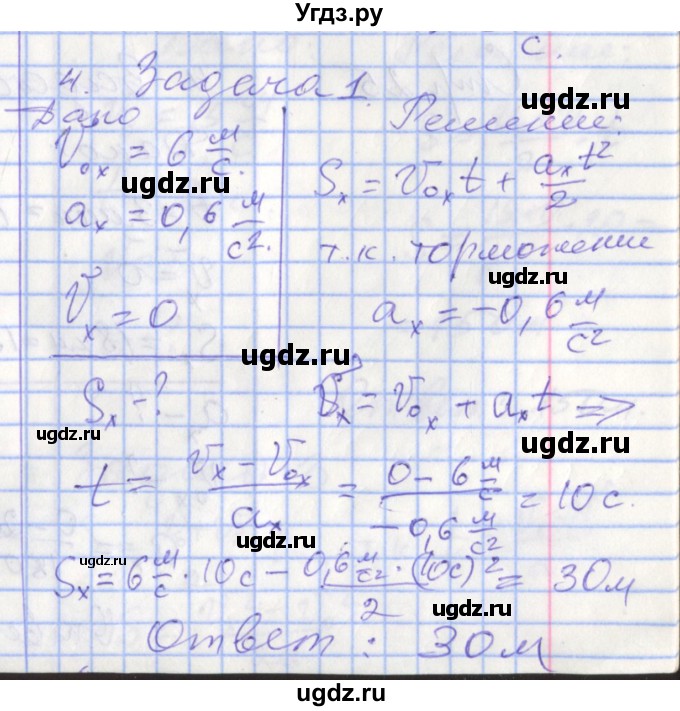 Угдз.ру
с.
4. Задача 1.
Дано
Решение:
V₀ₓ = 6 м/с.
aₓ = 0,6 м/с².
Vₓ = 0
Sₓ - ?
Sₓ = V₀ₓt + aₓt²/2
т.к. торможение
aₓ = -0,6 м/с²
Vₓ = V₀ₓ + aₓt =>
t = (Vₓ - V₀ₓ)/aₓ = (0 - 6 м/с)/(-0,6 м/с²) = 10 с.
Sₓ = 6 м/с · 10с - 0,6 м/с² · (10с)²/2 = 30 м
Ответ: 30 м
ugdz.ru
ugdz.ru
ugdz.ru
ugdz.ru
ugdz.ru
ugdz.ru
ugdz.ru
ugdz.ru
ugdz.ru
ugdz.ru
ugdz.ru